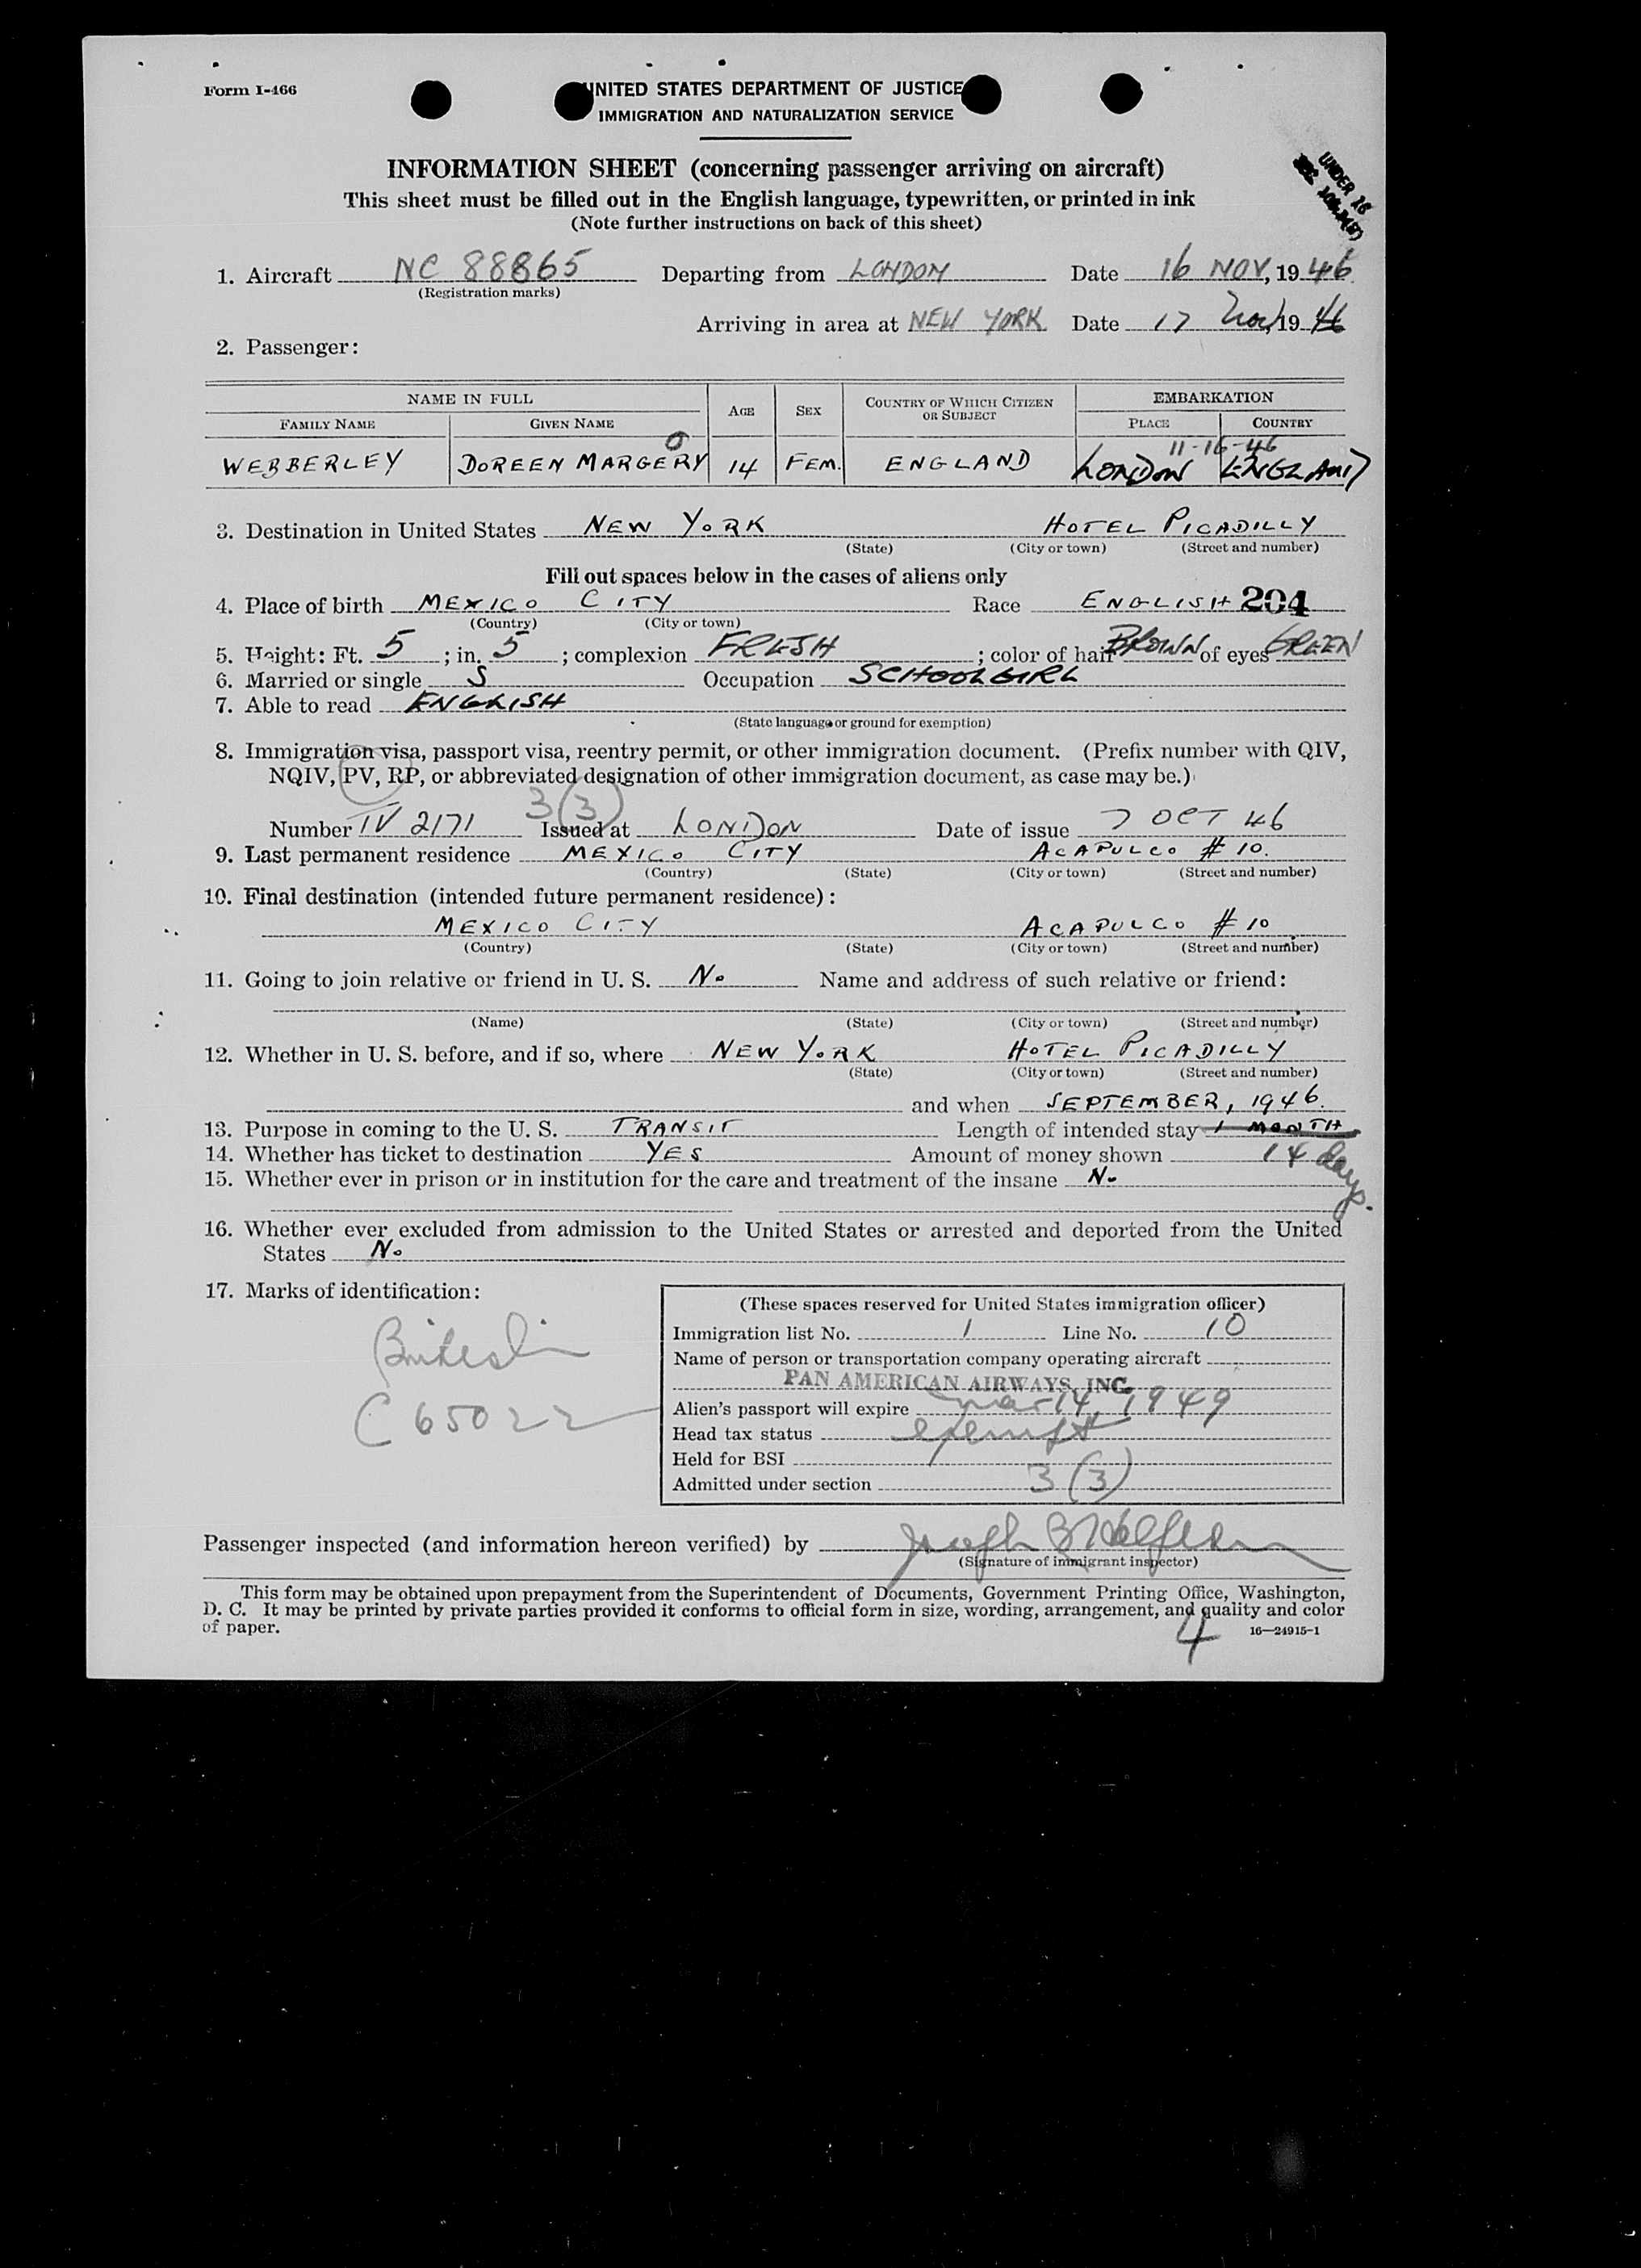 Form I-466
UNITED STATES DEPARTMENT OF JUSTICE
IMMIGRATION AND NATURALIZATION SERVICE
INFORMATION SHEET (concerning passenger arriving on aircraft)
This sheet must be filled out in the English language, typewritten, or printed in ink
(Note further instructions on back of this sheet)
UNDER 16
1. Aircraft NC 88865 Departing from LONDON Date 16 NOV, 1946
(Registration marks)
Arriving in area at NEW YORK Date 17 Nov, 1946
2. Passenger:
NAME IN FULL AGE SEX COUNTRY OF WHICH CITIZEN OR SUBJECT EMBARKATION
FAMILY NAME GIVEN NAME PLACE COUNTRY
11-16-46
WEBBERLEY DOREEN MARGERY 14 FEM. ENGLAND LONDON ENGLAND
3. Destination in United States NEW YORK HOTEL PICADILLY
(State) (City or town) (Street and number)
Fill out spaces below in the cases of aliens only
4. Place of birth MEXICO CITY Race ENGLISH 204
(Country) (City or town)
5. Height: Ft. 5; in. 5; complexion FRESH; color of hair BROWN of eyes GREEN
6. Married or single S Occupation SCHOOLGIRL
7. Able to read ENGLISH
(State language or ground for exemption)
8. Immigration visa, passport visa, reentry permit, or other immigration document. (Prefix number with QIV,
NQIV, PV, RP, or abbreviated designation of other immigration document, as case may be.)
3(3)
Number TV 2171 Issued at LONDON Date of issue 7 OCT 46
9. Last permanent residence MEXICO CITY ACAPULCO # 10.
(Country) (State) (City or town) (Street and number)
10. Final destination (intended future permanent residence):
MEXICO CITY ACAPULCO # 10
(Country) (State) (City or town) (Street and number)
11. Going to join relative or friend in U. S. No Name and address of such relative or friend:
(Name) (State) (City or town) (Street and number)
12. Whether in U. S. before, and if so, where NEW YORK HOTEL PICADILLY
(State) (City or town) (Street and number)
and when SEPTEMBER, 1946.
13. Purpose in coming to the U. S. TRANSIT Length of intended stay 1 MONTH
14. Whether has ticket to destination YES Amount of money shown 14 days.
15. Whether ever in prison or in institution for the care and treatment of the insane No
16. Whether ever excluded from admission to the United States or arrested and deported from the United
States No
17. Marks of identification:
C 65022
(These spaces reserved for United States immigration officer)
Immigration list No. 1 Line No. 10
Name of person or transportation company operating aircraft
PAN AMERICAN AIRWAYS, INC.
Alien's passport will expire Mar 14, 1949
Head tax status exempt
Held for BSI
Admitted under section 3(3)
Passenger inspected (and information hereon verified) by Joseph B
(Signature of immigrant inspector)
This form may be obtained upon prepayment from the Superintendent of Documents, Government Printing Office, Washington,
D. C. It may be printed by private parties provided it conforms to official form in size, wording, arrangement, and quality and color
of paper.
16—24915-1
4